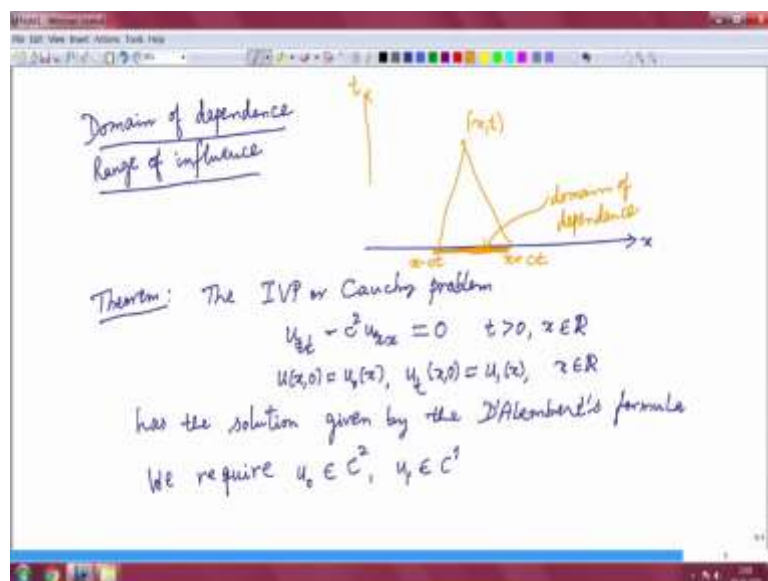 File Edit View Insert Actions Tools Help
Domain of dependence
Range of influence
t
(x,t)
domain of
dependence
x-ct
x+ct
x
Theorem: The IVP or Cauchy problem
u_tt - c²u_xx = 0 t>0, x∈R
u(x,0) = u₀(x), u_t(x,0) = u₁(x), x∈R
has the solution given by the D'Alembert's formula
We require u₀ ∈ C², u₁ ∈ C¹